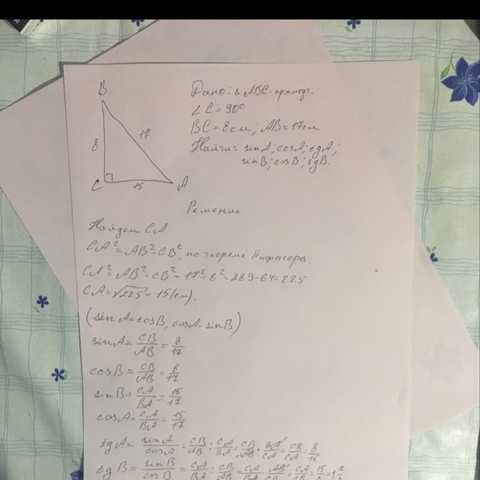 B
8
17
C
15
A
Дано: △ ABC прямоуг.
∠C = 90°
BC = 8 см; AB = 17 см
Найти: sin A; cos A; tg A;
sin B; cos B; tg B.
Решение
Найдем CA
CA² = AB² - CB², по теореме Пифагора.
CA² = AB² - CB² = 17² - 8² = 289 - 64 = 225
CA = √225 = 15 (см).
(sin A = cos B, cos A = sin B)
sin A = CB/AB = 8/17
cos B = CB/AB = 8/17
sin B = CA/BA = 15/17
cos A = CA/BA = 15/17
tg A = sin A/cos A = CB/AB : CA/BA = CB/AB · BA/CA = CB/CA = 8/15
tg B = sin B/cos B = CA/BA : CB/AB = CA/BA · AB/CB = CA/CB = 15/8